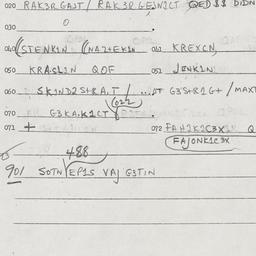 020 RAK3R GAJT / RAK3R GEJN2CT QED $$ DIDN
030 O
040 (STENK1N ((NA2+EK1N 041 KREXCN,
050 KRACL1N QOF 051 JENK1N
060 SK1ND2S+RA,T / ...,T G3S+R1G+ / MAXI
(022)
070 G3KA,K1CT
071 + 072 FAH2K2C3X Q
(FAJONK1C3X)
488
901 SOTN EP1S VAJ G3T1N